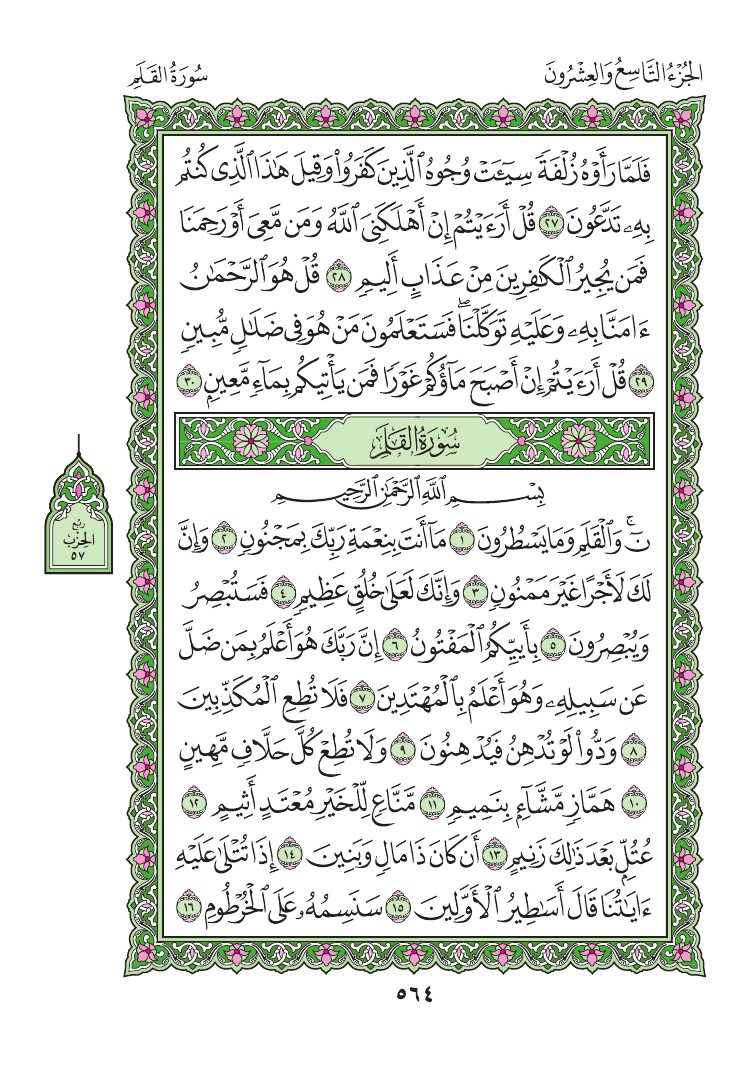 الجُزْءُ التَّاسِعُ وَالعِشْرُونَ
سُورَةُ القَلَمِ
فَلَمَّا رَأَوْهُ زُلْفَةً سِيٓـَٔتْ وُجُوهُ ٱلَّذِينَ كَفَرُواْ وَقِيلَ هَـٰذَا ٱلَّذِى كُنتُم
بِهِۦ تَدَّعُونَ ٢٧ قُلْ أَرَءَيْتُمْ إِنْ أَهْلَكَنِىَ ٱللَّهُ وَمَن مَّعِىَ أَوْ رَحِمَنَا
فَمَن يُجِيرُ ٱلْكَـٰفِرِينَ مِنْ عَذَابٍ أَلِيمٍ ٢٨ قُلْ هُوَ ٱلرَّحْمَـٰنُ
ءَامَنَّا بِهِۦ وَعَلَيْهِ تَوَكَّلْنَا ۖ فَسَتَعْلَمُونَ مَنْ هُوَ فِى ضَلَـٰلٍ مُّبِينٍ
٢٩ قُلْ أَرَءَيْتُمْ إِنْ أَصْبَحَ مَآؤُكُمْ غَوْرًا فَمَن يَأْتِيكُم بِمَآءٍ مَّعِينٍۭ ٣٠
سُورَةُ القَلَمِ
بِسْمِ ٱللَّهِ ٱلرَّحْمَـٰنِ ٱلرَّحِيمِ
نٓ ۚ وَٱلْقَلَمِ وَمَا يَسْطُرُونَ ١ مَآ أَنتَ بِنِعْمَةِ رَبِّكَ بِمَجْنُونٍ ٢ وَإِنَّ
لَكَ لَأَجْرًا غَيْرَ مَمْنُونٍ ٣ وَإِنَّكَ لَعَلَىٰ خُلُقٍ عَظِيمٍ ٤ فَسَتُبْصِرُ
وَيُبْصِرُونَ ٥ بِأَييِّكُمُ ٱلْمَفْتُونُ ٦ إِنَّ رَبَّكَ هُوَ أَعْلَمُ بِمَن ضَلَّ
عَن سَبِيلِهِۦ وَهُوَ أَعْلَمُ بِٱلْمُهْتَدِينَ ٧ فَلَا تُطِعِ ٱلْمُكَذِّبِينَ
٨ وَدُّواْ لَوْ تُدْهِنُ فَيُدْهِنُونَ ٩ وَلَا تُطِعْ كُلَّ حَلَّافٍ مَّهِينٍ
١٠ هَمَّازٍ مَّشَّآءٍۭ بِنَمِيمٍ ١١ مَّنَّاعٍ لِّلْخَيْرِ مُعْتَدٍ أَثِيمٍ ١٢
عُتُلٍّۭ بَعْدَ ذَٰلِكَ زَنِيمٍ ١٣ أَن كَانَ ذَا مَالٍ وَبَنِينَ ١٤ إِذَا تُتْلَىٰ عَلَيْهِ
ءَايَـٰتُنَا قَالَ أَسَـٰطِيرُ ٱلْأَوَّلِينَ ١٥ سَنَسِمُهُۥ عَلَى ٱلْخُرْطُومِ ١٦
رُبْعُ
الحِزْبِ
٥٧
٥٦٤